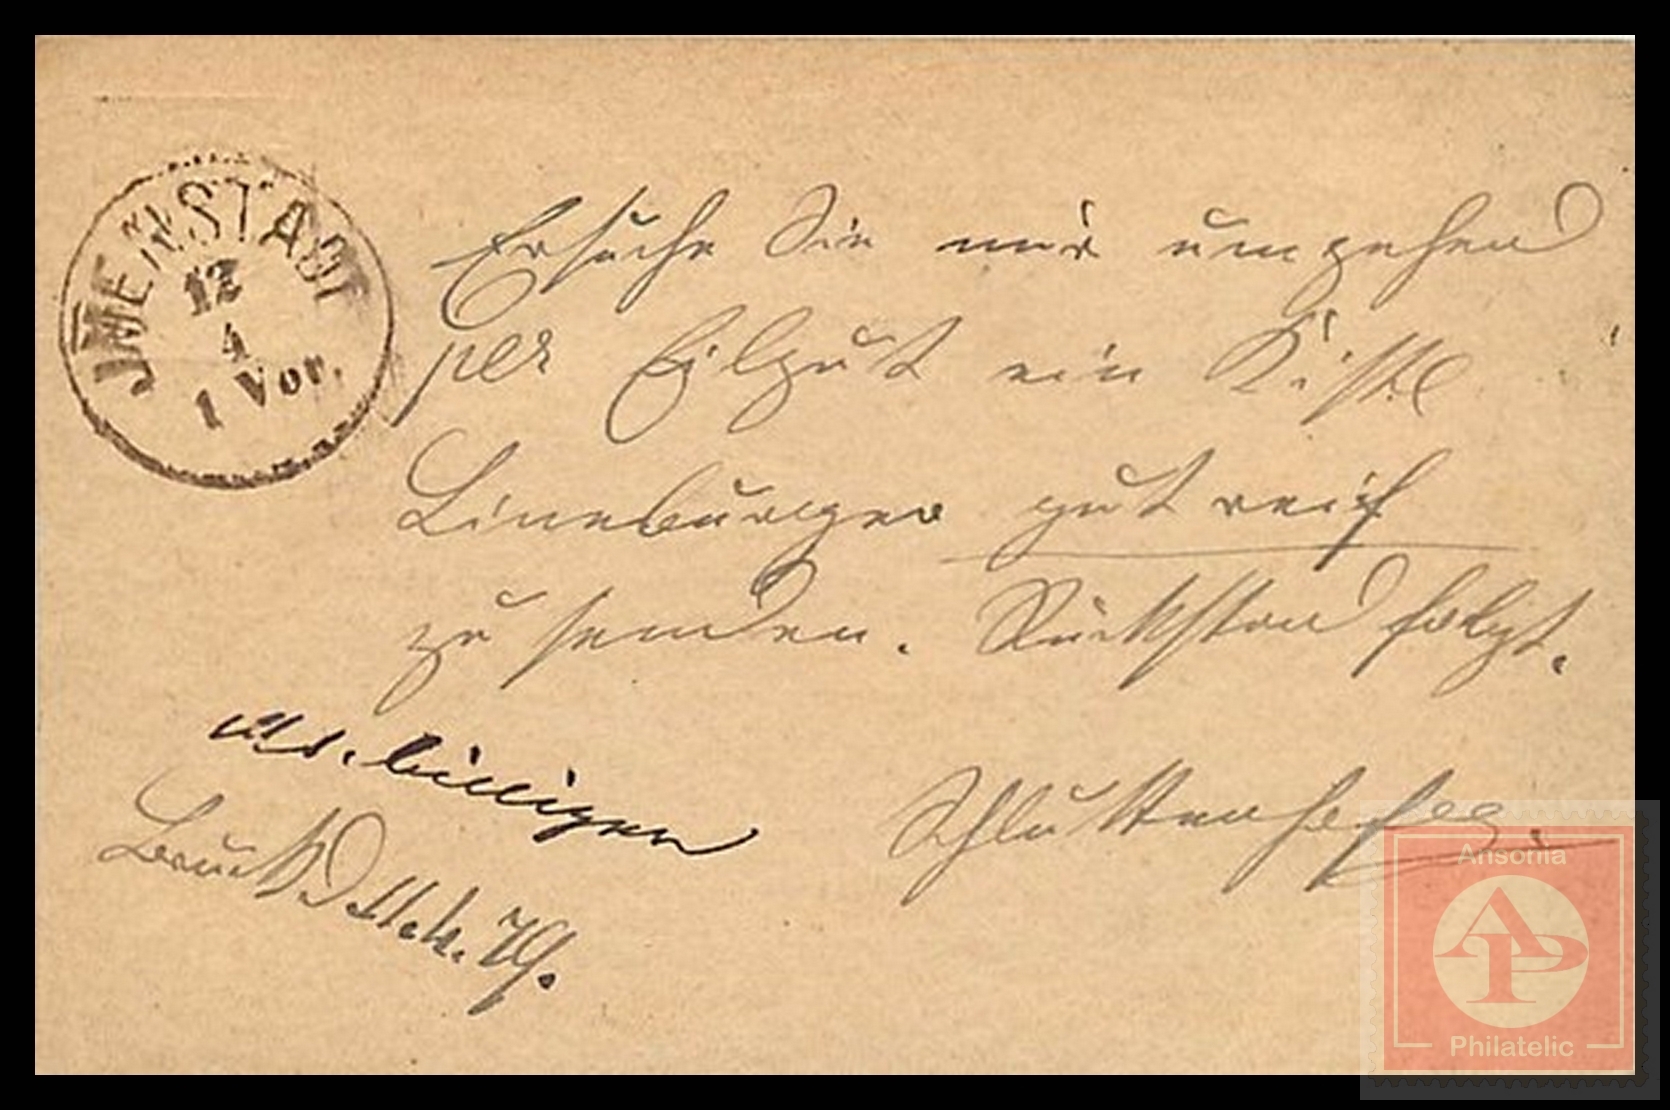 JMENSTADT
12
4
1 Vor.
Ersuche Sie mir umgehend
per Eilgut ein Kistl
Lineburger gut reif
zu senden. Rückstand folgt.
billigen
Bruck d 11.4.79.
Ansonia
AP
Philatelic